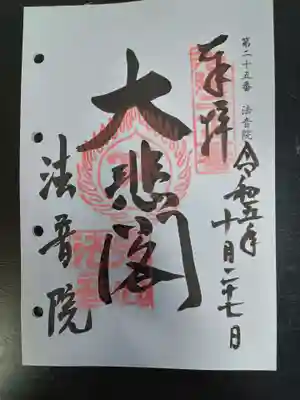 第二十五番 法音院
奉拝
令和五年
十月二十七日
大悲閣
法音院